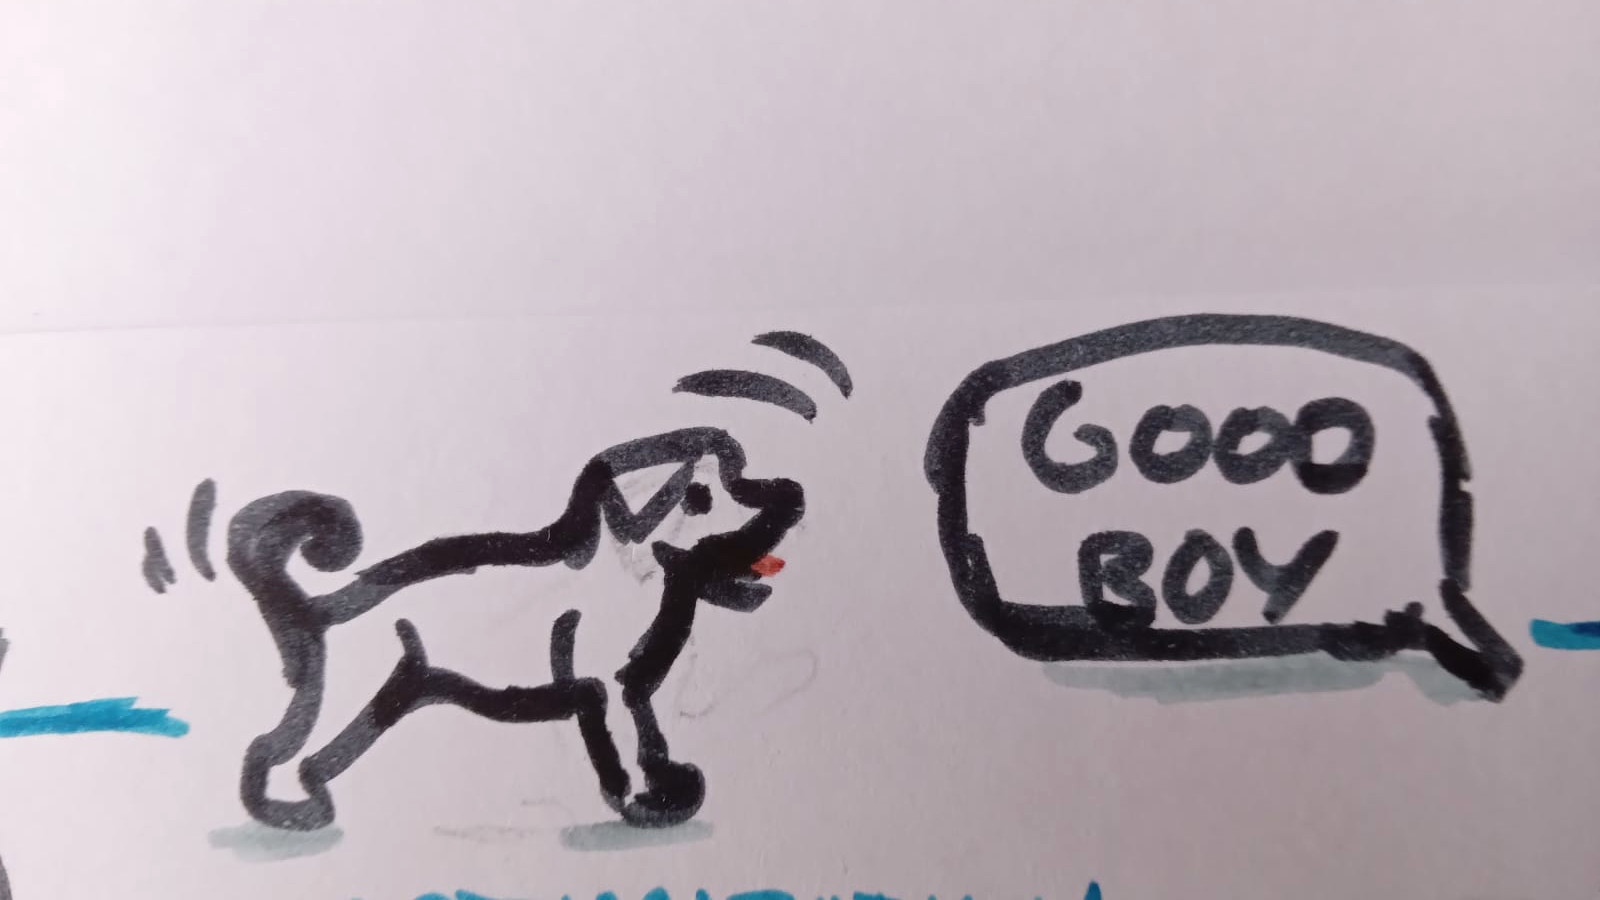 GOOD
BOY